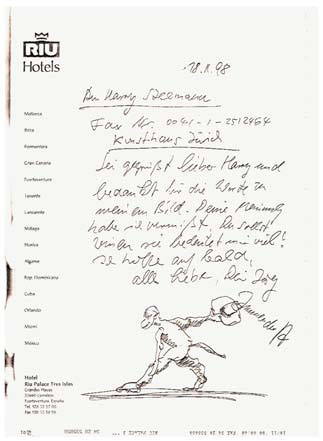 RIU
Hotels
18.11.98
An Harry Szeemann
Fax Nr. 0041-1-2512464
Kunsthaus Zürich
Sei gegrüßt lieber Harry und
bedankt für die Worte zu
meinem Bild. Deine Meinung
habe sie vermißt. Du sollst
wissen sie bedeutet mir viel!
Ich hoffe auf bald,
alles Liebe, Dein Jörg
Mallorca
Ibiza
Formentera
Gran Canaria
Fuerteventura
Tenerife
Lanzarote
Málaga
Huelva
Algarve
Rep. Dominicana
Cuba
Orlando
Miami
México
Hotel
Riu Palace Tres Islas
Grandes Playas
Fuerteventura, España